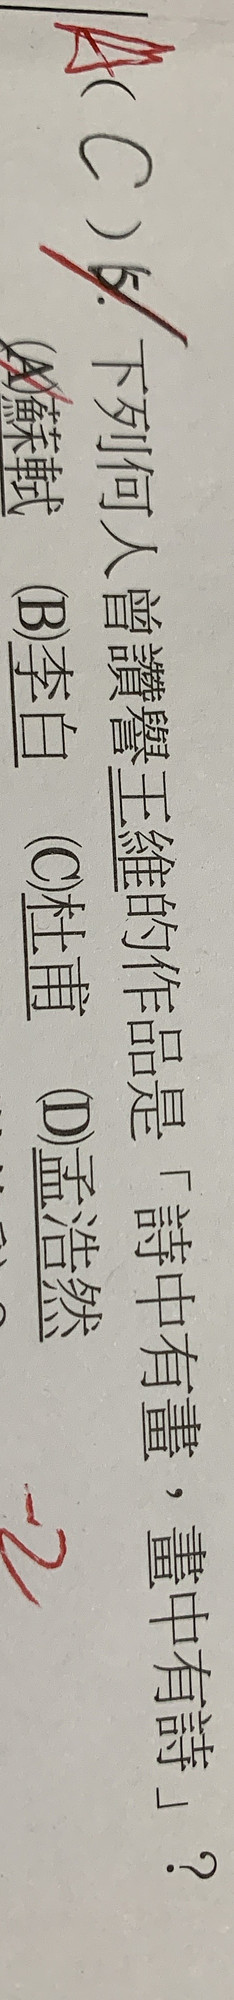 A( C ) 5. 下列何人曾讚譽王維的作品是「詩中有畫，畫中有詩」？
(A)蘇軾 (B)李白 (C)杜甫 (D)孟浩然
-2